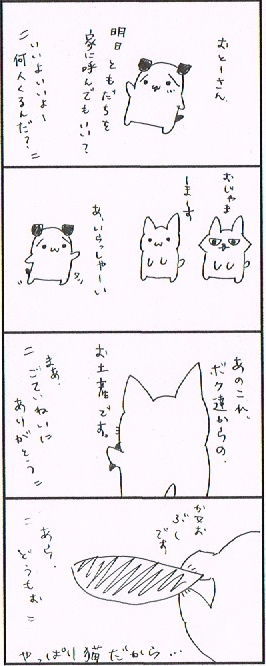 むとーさん、
明日ともだちを
家に呼んでもいい？
＝いいよいいよー
何人くるんだ？＝
むじゃま
しまーす
あ、いらっしゃーい
あのこれ、
ボク達からの、
お土産です。
＝まあ、
ごていねいに
ありがとう＝
かつお
ぶし
です
＝あら、
どうもぉ＝
やっぱり猫だから…